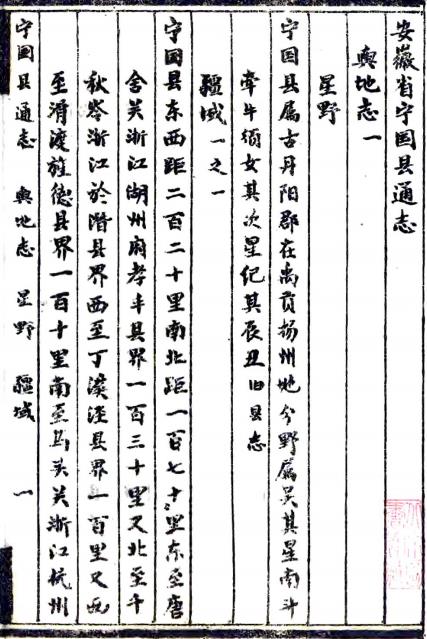 安徽省宁国县通志
舆地志一
星野
宁国县属古丹阳郡在禹贡扬州地分野属吴其星南斗
牵牛须女其次星纪其辰丑旧县志
疆域一之一
宁国县东西距二百二十里南北距一百七十里东至唐
舍关浙江湖州府孝丰县界一百三十里又北至千
秋岺浙江於潜县界西至丁溪泾县界一百里又西
至滑渡旌德县界一百十里南至马头关浙江杭州
宁国县通志 舆地志 星野 疆域 一